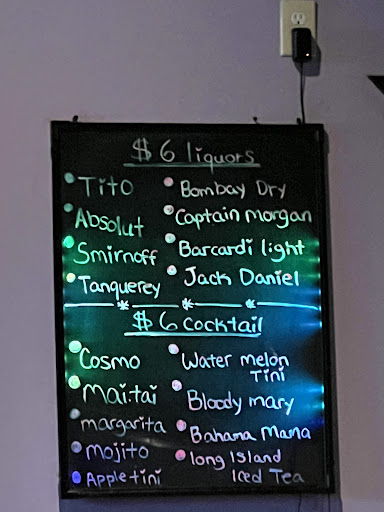 $6 liquors
Tito
Bombay Dry
Absolut
Captain morgan
Smirnoff
Barcardi light
Tanquerey
Jack Daniel
$6 Cocktail
Cosmo
Water melon
Tini
Mai.tai
Bloody mary
margarita
Bahana Mama
mojito
long Island
Iced Tea
Appletini